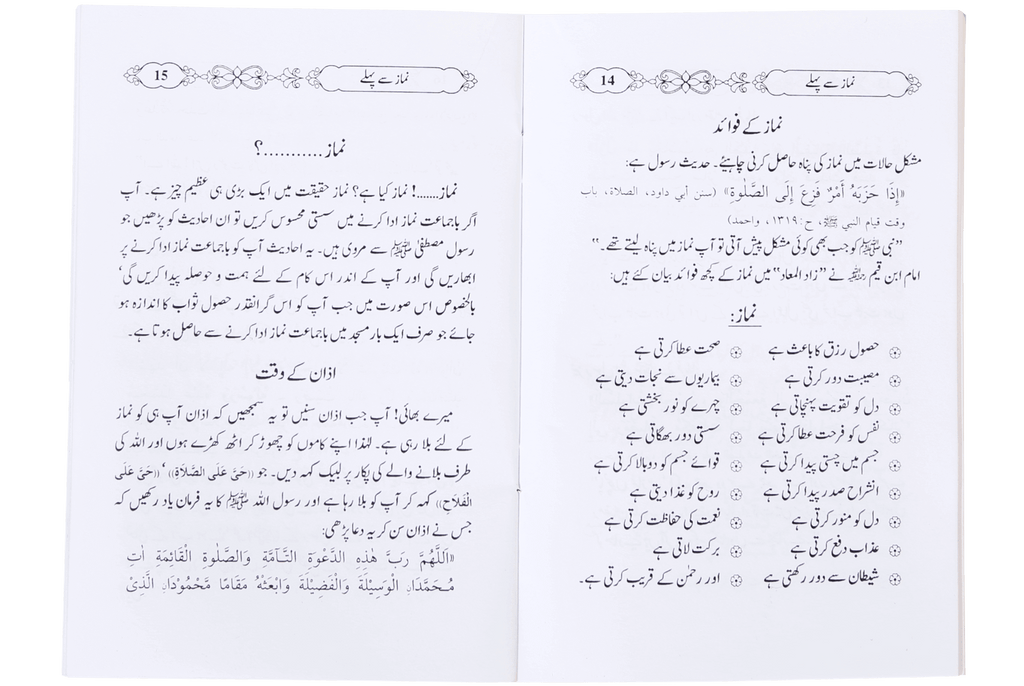 نماز سے پہلے 14
نماز کے فوائد
مشکل حالات میں نماز کی پناہ حاصل کرنی چاہیئے۔ حدیث رسول ہے:
«إِذَا حَزَبَهُ أَمْرٌ فَزِعَ إِلَى الصَّلٰوةِ» (سنن أبي داود، الصلاة، باب
وقت قيام النبي ﷺ، ح:۱۳۱۹، واحمد)
”نبی ﷺ کو جب بھی کوئی مشکل پیش آتی تو آپ نماز میں پناہ لیتے تھے۔“
امام ابن قیم رحمہ اللہ نے ”زاد المعاد“ میں نماز کے کچھ فوائد بیان کئے ہیں:
نماز:
حصول رزق کا باعث ہے صحت عطا کرتی ہے
مصیبت دور کرتی ہے بیماریوں سے نجات دیتی ہے
دل کو تقویت پہنچاتی ہے چہرے کو نور بخشتی ہے
نفس کو فرحت عطا کرتی ہے سستی دور بھگاتی ہے
جسم میں چستی پیدا کرتی ہے قوائے جسم کو دوبالا کرتی ہے
انشراح صدر پیدا کرتی ہے روح کو غذا دیتی ہے
دل کو منور کرتی ہے نعمت کی حفاظت کرتی ہے
عذاب دفع کرتی ہے برکت لاتی ہے
شیطان سے دور رکھتی ہے اور رحمٰن کے قریب کرتی ہے۔
نماز سے پہلے 15
نماز..........؟
نماز.......! نماز کیا ہے؟ نماز حقیقت میں ایک بڑی ہی عظیم چیز ہے۔ آپ
اگر باجماعت نماز ادا کرنے میں سستی محسوس کریں تو ان احادیث کو پڑھیں جو
رسول مصطفیٰ ﷺ سے مروی ہیں۔ یہ احادیث آپ کو باجماعت نماز ادا کرنے پر
ابھاریں گی اور آپ کے اندر اس کام کے لئے ہمت و حوصلہ پیدا کریں گی‘
بالخصوص اس صورت میں جب آپ کو اس گرانقدر حصول ثواب کا اندازہ ہو
جائے جو صرف ایک بار مسجد میں باجماعت نماز ادا کرنے سے حاصل ہوتا ہے۔
اذان کے وقت
میرے بھائی! آپ جب اذان سنیں تو یہ سمجھیں کہ اذان آپ ہی کو نماز
کے لئے بلا رہی ہے۔ لہٰذا اپنے کاموں کو چھوڑ کر اٹھ کھڑے ہوں اور اللہ کی
طرف بلانے والے کی پکار پر لبیک کہہ دیں۔ جو «حَيَّ عَلَى الصَّلَاةِ»‘ «حَيَّ عَلَى
الْفَلَاحِ» کہہ کر آپ کو بلا رہا ہے اور رسول اللہ ﷺ کا یہ فرمان یاد رکھیں کہ
جس نے اذان سن کر یہ دعا پڑھی:
«اَللّٰهُمَّ رَبَّ هٰذِهِ الدَّعْوَةِ التَّآمَّةِ وَالصَّلٰوةِ الْقَائِمَةِ اٰتِ
مُحَمَّدَاۨ الْوَسِيْلَةَ وَالْفَضِيْلَةَ وَابْعَثْهُ مَقَامًا مَّحْمُوْدَاۨ الَّذِىْ